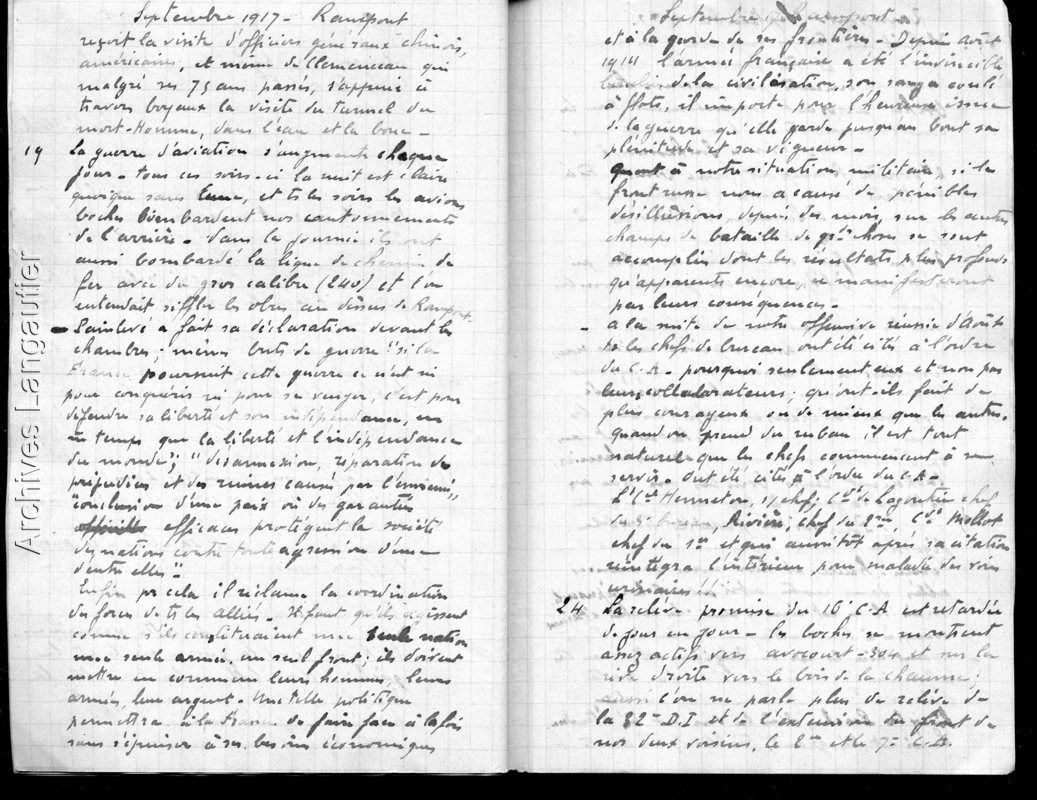 Septembre 1917 - Rampont
reçoit la visite d'officiers généraux chinois,
américains, et meme de Clemenceau qui
malgré ses 75 ans passés, s'appuie à
travers boyaux la visite du tunnel du
mort-Homme, dans l'eau et la boue -
19 La guerre d'aviation s'augmente chaque
jour - tous ces soirs-ci la nuit est claire
quoique sans lune, et ts les soirs les avions
boches bombardent nos cantonnements
de l'arrière - dans la journée ils ont
aussi bombardé la ligne de chemin de
fer avec du gros calibre (240) et l'on
entendait siffler les obus au dessus de Rampont.
- Painlevé a fait sa déclaration devant les
chambres : mêmes buts de guerre "si la
France poursuit cette guerre ce n'est ni
pour conquérir ni pour se venger, c'est pour
défendre sa liberté et son indépendance, en
m temps que la liberté et l'indépendance
du monde"; "désannexion, réparation des
préjudices et des ruines causés par l'ennemi"
"conclusion d'une paix où des garanties
efficaces protègent la société
des nations contre toute agression d'une
d'entre elles".
Enfin pr cela il réclame la coordination
des forces de ts les alliés. Il faut qu'ils agissent
comme s'ils constituaient une seule nation
une seule armée, un seul front; ils doivent
mettre en commun leurs hommes, leurs
armées, leur argent. Une telle politique
permettra à la France de faire face à la fois
sans s'épuiser à ses besoins économiques
Septembre Rampont
et à la garde de ses frontières - Depuis août
1914 l'armée française a été l'invincible
de la civilisation, son sang a coulé
à flots, il importe pour l'heureuse issue
de la guerre qu'elle garde jusqu'au bout sa
plénitude et sa vigueur -
quant à notre situation militaire, si le
front russe nous a causé de pénibles
désillusions, depuis des mois, sur les autres
champs de bataille de gdes choses se sont
accomplies dont les résultats plus profonds
qu'apparents encore, se manifesteront
par leurs conséquences -
- a la suite de notre offensive réussie d'Août
ts les chefs de bureau ont été cités à l'ordre
du C.A - pourquoi seulement eux et non pas
leurs collaborateurs; qu'ont-ils fait de
plus courageux ou de mieux que les autres.
quand on prend du ruban il est tout
naturel que les chefs commencent à se
servir. Ont été cités à l'ordre du C.A -
Lt Cel Henneton, s/ chef; Ct de Lagontrie chef
du 3e bureau, Rivière, chef du 2me Cdt Mollot
chef du 1er et qui aussitôt après sa citation
réintégra l'intérieur pour maladie des voies
urinaires!!
24 La relève promise du 16e C.A est retardée
de jour en jour - les boches se montrent
assez actifs vers avocourt - 304 et sur la
rive droite vers le bois de la chaume;
aussi l'on ne parle plus de relève de
la 32e D.I et de l'extension du front de
nos deux voisins, le 2me et le 7e C.A.
Archives Langautier